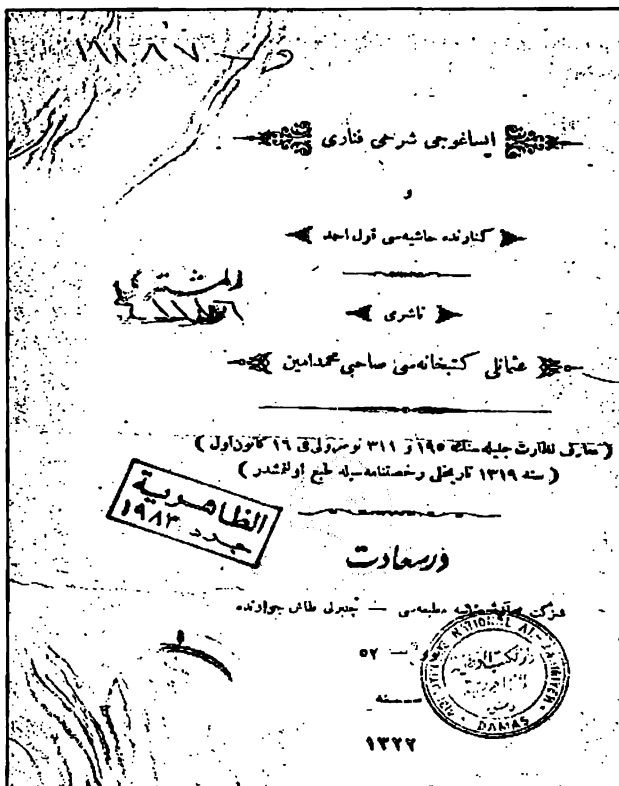 ايساغوجى شرحى فنارى
و
كنارنده حاشيه‌سى قول احمد
ناشرى
عثمانلى كتبخانه‌سى صاحبى محمد امين
( معارف نظارت جليله‌سنك ١٩٥ و ٣١١ نومرولى فى ١٦ كانون اول )
( سنه ١٣١٩ تاريخلى رخصتنامه‌سيله طبع اولنمشدر )
الظاهرية
جدد ١٩٨٣
درسعادت
شركت مطبعه‌سى — چنبرلى طاش جوارنده
٥٢ —
سنه
١٣٢٢
NATIONAL AL-ZAHIRIYEH
DAMAS